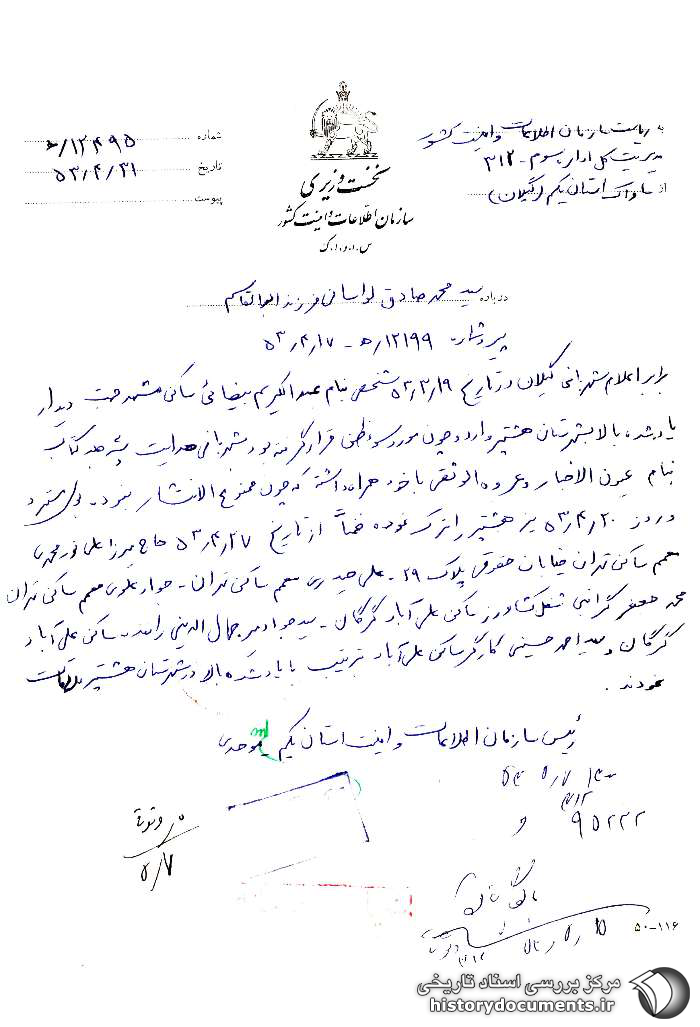 به ریاست سازمان اطلاعات و امنیت کشور
مدیریت کل اداره سوم - ۳۱۲
از ساواک استان یکم (گیلان)
نخست وزیری
سازمان اطلاعات و امنیت کشور
س.ا.و.ا.ک
شماره ۱۲۴۹۵/ه
تاریخ ۵۳/۴/۳۱
پیوست
درباره سید محمد صادق لواسانی فرزند ابوالقاسم
پیرو شماره ۱۲۱۹۹/ه - ۵۳/۴/۱۷
برابر اعلام شهربانی گیلان در تاریخ ۵۳/۴/۱۹ شخصی بنام عبدالکریم بیضائی ساکن مشهد جهت دیدار
یاد شده بالا بشهرستان هشتپر وارد و چون مورد سوءظن قرار گرفته بود بشهربانی هدایت جلد کتاب
بنام عیون الاخبار و عروه الوثقی با خود همراه داشته که چون ممنوع الانتشار نبود
در روز ۵۳/۴/۲۰ نیز هشتپر را ترک نموده ضمناً از تاریخ ۵۳/۴/۲۷ حاج میرزا علی نور محمدی
معمم ساکن تهران خیابان حقوقی پلاک ۲۹ - علی حیدری معمم ساکن تهران - جواد علوی معمم ساکن تهران
محمد جعفر گرائیی شغل کشاورز ساکن علی آباد گرگان - سید جواد میر جمال الدینی ساکن علی آباد
گرگان و سید احمد حسینی کارگر ساکن علی آباد بترتیب با یاد شده بالا در شهرستان هشتپر ملاقات
نمودند.
رئیس سازمان اطلاعات و امنیت استان یکم
۳۱۲
۹۵۲۲۲
۵/۷
۳۱۲
۵۰-۱۱۶
مرکز بررسی اسناد تاریخی
historydocuments.ir